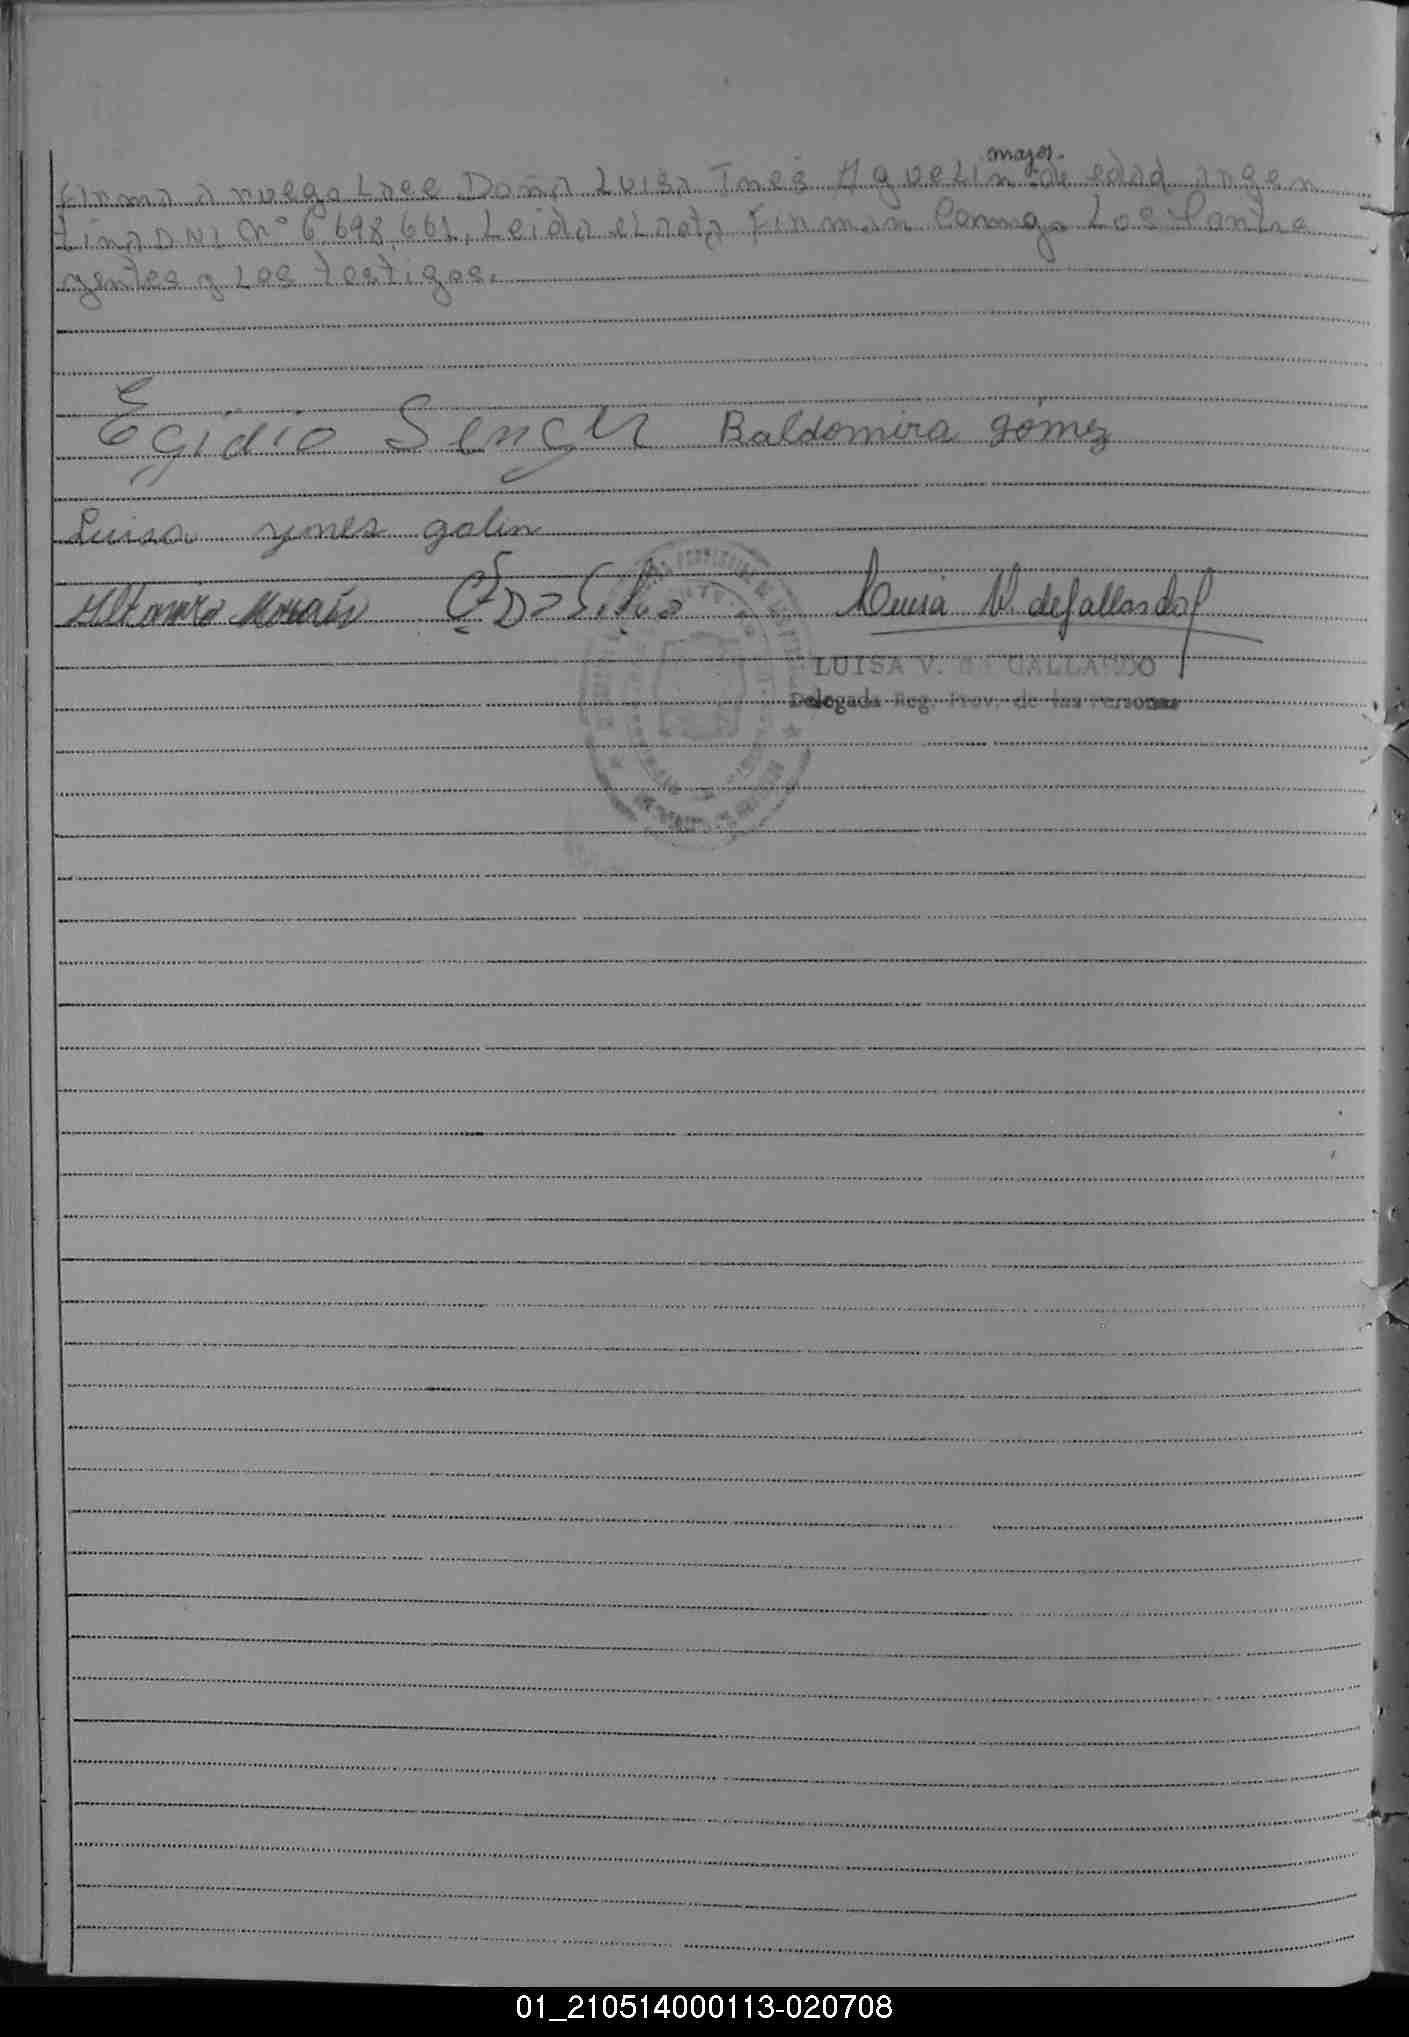 mayor
Firma a ruego Laee Doña Luisa Ines Aguelin de edad argen
tina DNI Nº 6.698.661, Leida el acta Firman Conmigo Los Contra
yentes y Los testigos.
Egidio Senger Baldomira gomez
Luisa ynes golin
Luisa V. de Gallardo
LUISA V. DE GALLARDO
Delegada Reg. Prov. de las Personas
01_210514000113-020708